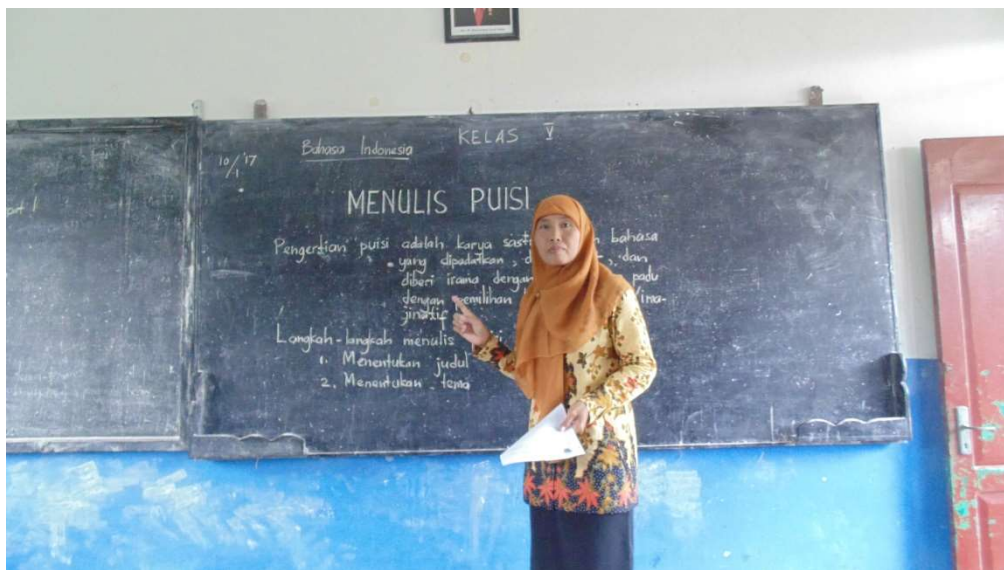 KELAS V
Bahasa Indonesia
10/1 '17
MENULIS PUISI
Pengertian puisi adalah karya sast bahasa
yang dipadatkan, d , dan
diberi irama dengan padu
dengan pemilihan /ima-
jinatif
Langkah-langkah menulis
1. Menentukan judul
2. Menentukan tema